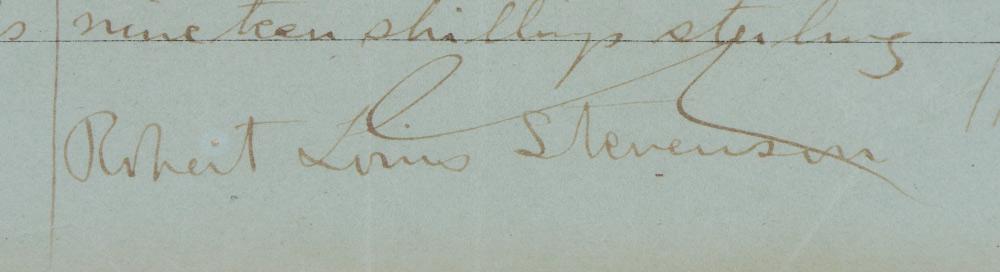 s nineteen shillings sterling
Robert Louis Stevenson